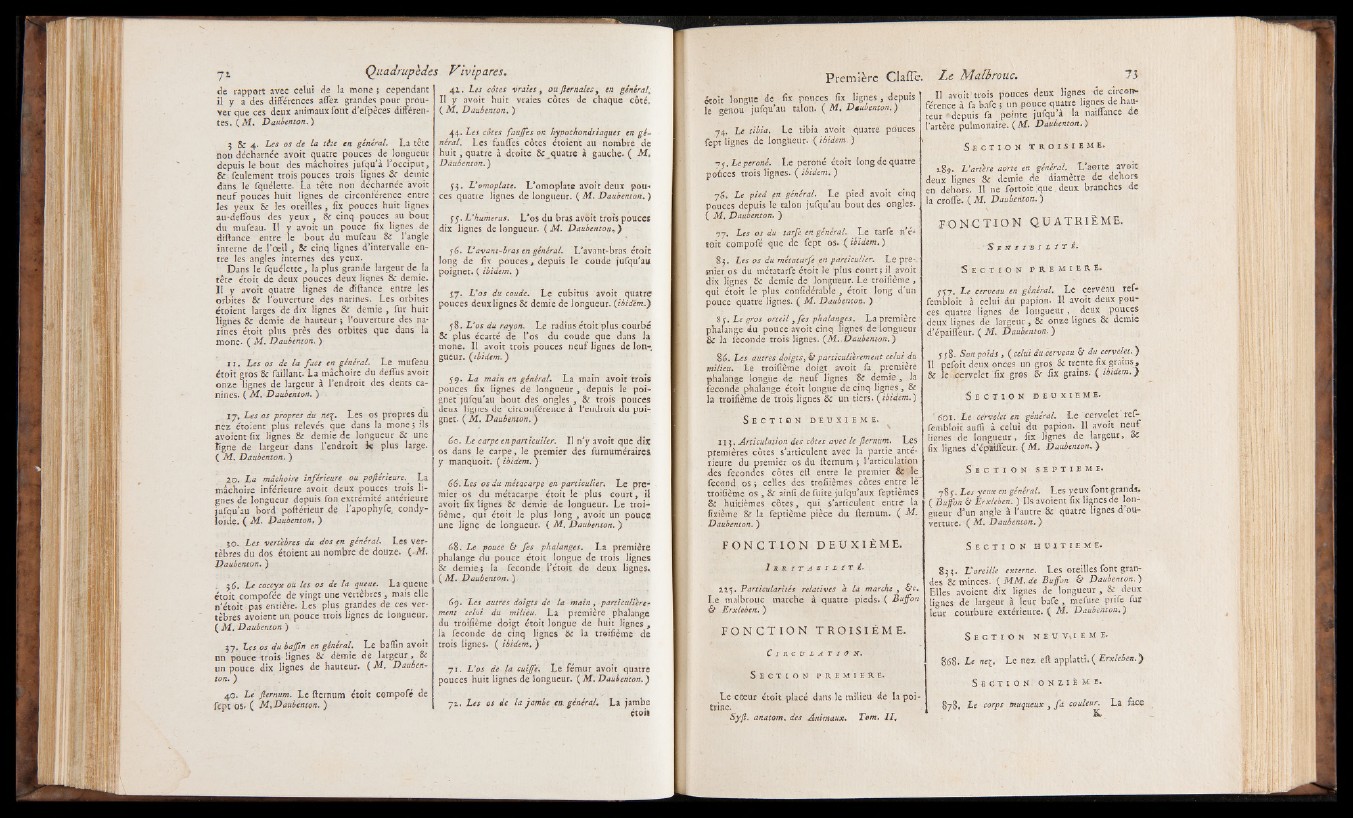 72 Quadrupèdes Vivipares.
de rapport avec celui de la mone ; cependant
il y a des différences assez grandes pour prou-
ver que ces deux animaux sont d'espèces différen-
tes. ( M. Daubenton. )
3 & 4. Les os de la tête en général. La tête
non décharnée avoit quatre pouces de longueur
depuis le bout des mâchoires jusqu'à l'occiput,
& seulement trois pouces trois lignes & demie
dans le squélette. La tête non décharnée avoit
neuf pouces huit lignes de circonférence entre
les yeux & les oreilles, six pouces huit lignes
au-dessous des yeux, & cinq pouces au bout
du museau. Il y avoit un pouce six lignes de
distance entre le bout du museau & l'angle
interne de l'œil, & cinq lignes d'intervalle en-
tre les angles internes des yeux.
Dans le squélette, la plus grande largeur de la
tête étoit de deux pouces deux lignes & demie.
Il y avoit quatre lignes de distance entre les
orbites & l'ouverture des narines. Les orbites
étoient larges de dix lignes & demie, sur huit
lignes & demie de hauteur ; l'ouverture des na-
rines étoit plus près des orbites que dans la
mone. ( M. Daubenton. )
11. Les os de la face en général. Le museau
étoit gros & saillant. La mâchoire du dessus avoit
onze lignes de largeur à l'endroit des dents ca-
nines. ( M. Daubenton. )
17. Les os propres du nez. Les os propres du
nez étoient plus relevés que dans la mone ; ils
avoient six lignes & demie de longueur & une
ligne de largeur dans l'endroit le plus large.
( M. Daubenton. )
20. La mâchoire inférieure ou postérieure. La
mâchoire inférieure avoit deux pouces trois li-
gnes de longueur depuis son extrémité antérieure
jusqu'au bord postérieur de l'apophyse condy-
loïde. ( M. Daubenton. )
30. Les vertèbres du dos en général. Les ver-
tèbres du dos étoient au nombre de douze. ( M.
Daubenton. )
36. Le coccyx ou les os de la queue. La queue
étoit composée de vingt une vertèbres, mais elle
n'étoit pas entière. Les plus grandes de ces ver-
tèbres avoient un pouce trois lignes de longueur.
( M. Daubenton )
37. Les os du bassin en général. Le bassin avoit
un pouce trois lignes & demie de largeur, &
un pouce dix lignes de hauteur. ( M. Dauben-
ton. )
40. Le sternum. Le sternum étoit composé de
sept os. ( M. Daubenton. )
42. Les côtes vraies, ou sternales, en général.
Il y avoit huit vraies côtes de chaque côté.
( M. Daubenton. )
44. Les côtes fausses ou hypochondriaques en gé-
néral. Les fausses côtes étoient au nombre de
huit, quatre à droite & quatre à gauche. ( M.
Daubenton. )
53. L'omoplate. L'omoplate avoit deux pou-
ces quatre lignes de longueur. ( M. Daubenton. )
55. L'humerus. L'os du bras avoit trois pouces
dix lignes de longueur. ( M. Daubenton. )
56. L'avant-bras en général. L'avant-bras étoit
long de six pouces, depuis le coude jusqu'au
poignet. ( ibidem. )
57. L'os du coude. Le cubitus avoit quatre
pouces deux lignes & demie de longueur. (ibidem.)
58. L'os du rayon. Le radius étoit plus courbé
& plus écarté de l'os du coude que dans la
mone. Il avoit trois pouces neuf lignes de lon-
gueur. (ibidem. )
59. La main en général. La main avoit trois
pouces six lignes de longueur, depuis le poi-
gnet jusqu'au bout des ongles, & trois pouces
deux lignes de circonférence à l'endroit du poi-
gnet. ( M. Daubenton. )
60. Le carpe en particulier. Il n'y avoit que dix
os dans le carpe, le premier des surnuméraires
y manquoit. ( ibidem. )
66. Les os du métacarpe en particulier. Le pre-
mier os du métacarpe étoit le plus court, il
avoit six lignes & demie de longueur. Le troi-
sième, qui étoit le plus long, avoit un pouce
une ligne de longueur. ( M. Daubenton. )
68. Le pouce & ses phalanges. La première
phalange du pouce étoit longue de trois lignes
& demie ; la seconde l'étoit de deux lignes.
( M. Daubenton. )
69. Les autres doigts de la main, particulière-
ment celui du milieu. La première phalange
du troisième doigt étoit longue de huit lignes,
la seconde de cinq lignes & la troisième de
trois lignes. ( ibidem. )
71. L'os de la cuisse. Le fémur avoit quatre
pouces huit lignes de longueur. ( M. Daubenton. )
72. Les os de la jambe en général. La jambe
étoit
Première Classe. Le Malbrouc. 73
étoit longue de six pouces six lignes, depuis
le genou jusqu'au talon. ( M. Daubenton. )
74. Le tibia. Le tibia avoit quatre pouces
sept lignes de longueur. ( ibidem. )
75. Le peroné. Le peroné étoit long de quatre
pouces trois lignes. ( ibidem. )
76. Le pied en général. Le pied avoit cinq
pouces depuis le talon jusqu'au bout des ongles.
( M. Daubenton. )
77. Les os du tarse en général. Le tarse n'é-
toit composé que de sept os. ( ibidem. )
83. Les os du métatarse en particulier. Le pre-
mier os du métatarse étoit le plus court ; il avoit
dix lignes & demie de longueur. Le troisième,
qui étoit le plus considérable, étoit long d'un
pouce quatre lignes. ( M. Daubenton. )
85. Le gros orteil, ses phalanges. La première
phalange du pouce avoit cinq lignes de longueur
& la seconde trois lignes. (M. Daubenton. )
86. Les autres doigts, & particulièrement celui du
milieu. Le troisième doigt avoit sa première
phalange longue de neuf lignes & demie, la
seconde phalange étoit longue de cinq lignes, &
la troisième de trois lignes & un tiers. ( ibidem. )
SECTION DEUXIEME.
113. Articulation des côtes avec le sternum. Les
premières côtes s'articulent avec la partie anté-
rieure du premier os du sternum ; l'articulation
des secondes côtes est entre le premier & le
second os ; celles des troisièmes côtes entre le
troisième os, & ainsi de suite jusqu'aux septièmes
& huitièmes côtes, qui s'articulent entre la
sixième & la septième pièce du sternum. ( M.
Daubenton. )
FONCTION DEUXIÈME.
IRRITABILITÉ.
225. Particularités relatives à la marche, &c.
Le malbrouc marche à quatre pieds. ( Buffon
& Erxleben. )
FONCTION TROISIÈME.
CIRCULATION.
SECTION PREMIERE.
Le cœur étoit placé dans le milieu de la poi-
trine.
Syst. anatom. des Animaux. Tom. II.
Il avoit trois pouces deux lignes de circon-
férence à sa base ; un pouce quatre lignes de hau-
teur depuis sa pointe jusqu'à la naissance de
l'artère pulmonaire. ( M. Daubenton. )
SECTION TROISIEME.
289. L'artère aorte en général. L'aorte avoit
deux lignes & demie de diamètre de dehors
en dehors. Il ne sortoit que deux branches de
la crosse. ( M. Daubenton. )
FONCTION QUATRIÈME.
SENSIBILITÉ.
SECTION PREMIERE.
557. Le cerveau en général. Le cerveau res-
sembloit à celui du papion. Il avoit deux pou-
ces quatre lignes de longueur, deux pouces
deux lignes de largeur, & onze lignes & demie
d'épaisseur. ( M. Daubenton. )
558. Son poids, ( celui du cerveau & du cervelet. )
Il pesoit deux onces un gros & trente six grains,
& le cervelet six gros & six grains. ( ibidem. )
SECTION DEUXIEME.
601. Le cervelet en général. Le cervelet res-
sembloit aussi à celui du papion. Il avoit neuf
lignes de longueur, six lignes de largeur, &
six lignes d'épaisseur. ( M. Daubenton. )
SECTION SEPTIEME.
785. Les yeux en général. Les yeux sont grands.
( Buffon & Erxleben. ) Ils avoient six lignes de lon-
gueur d'un angle à l'autre & quatre lignes d'ou-
verture. ( M. Daubenton. )
SECTION HUITIEME.
833. L'oreille externe. Les oreilles sont gran-
des & minces. ( MM. de Buffon & Daubenton. )
Elles avoient dix lignes de longueur, & deux
lignes de largeur à leur base, mesure prise sur
leur courbure extérieure. ( M. Daubenton. )
SECTION NEUVIEME.
868. Le nez. Le nez est applatti. ( Erxleben. )
SECTION ONZIÈME.
878. Le corps muqueux, sa couleur. La face
K